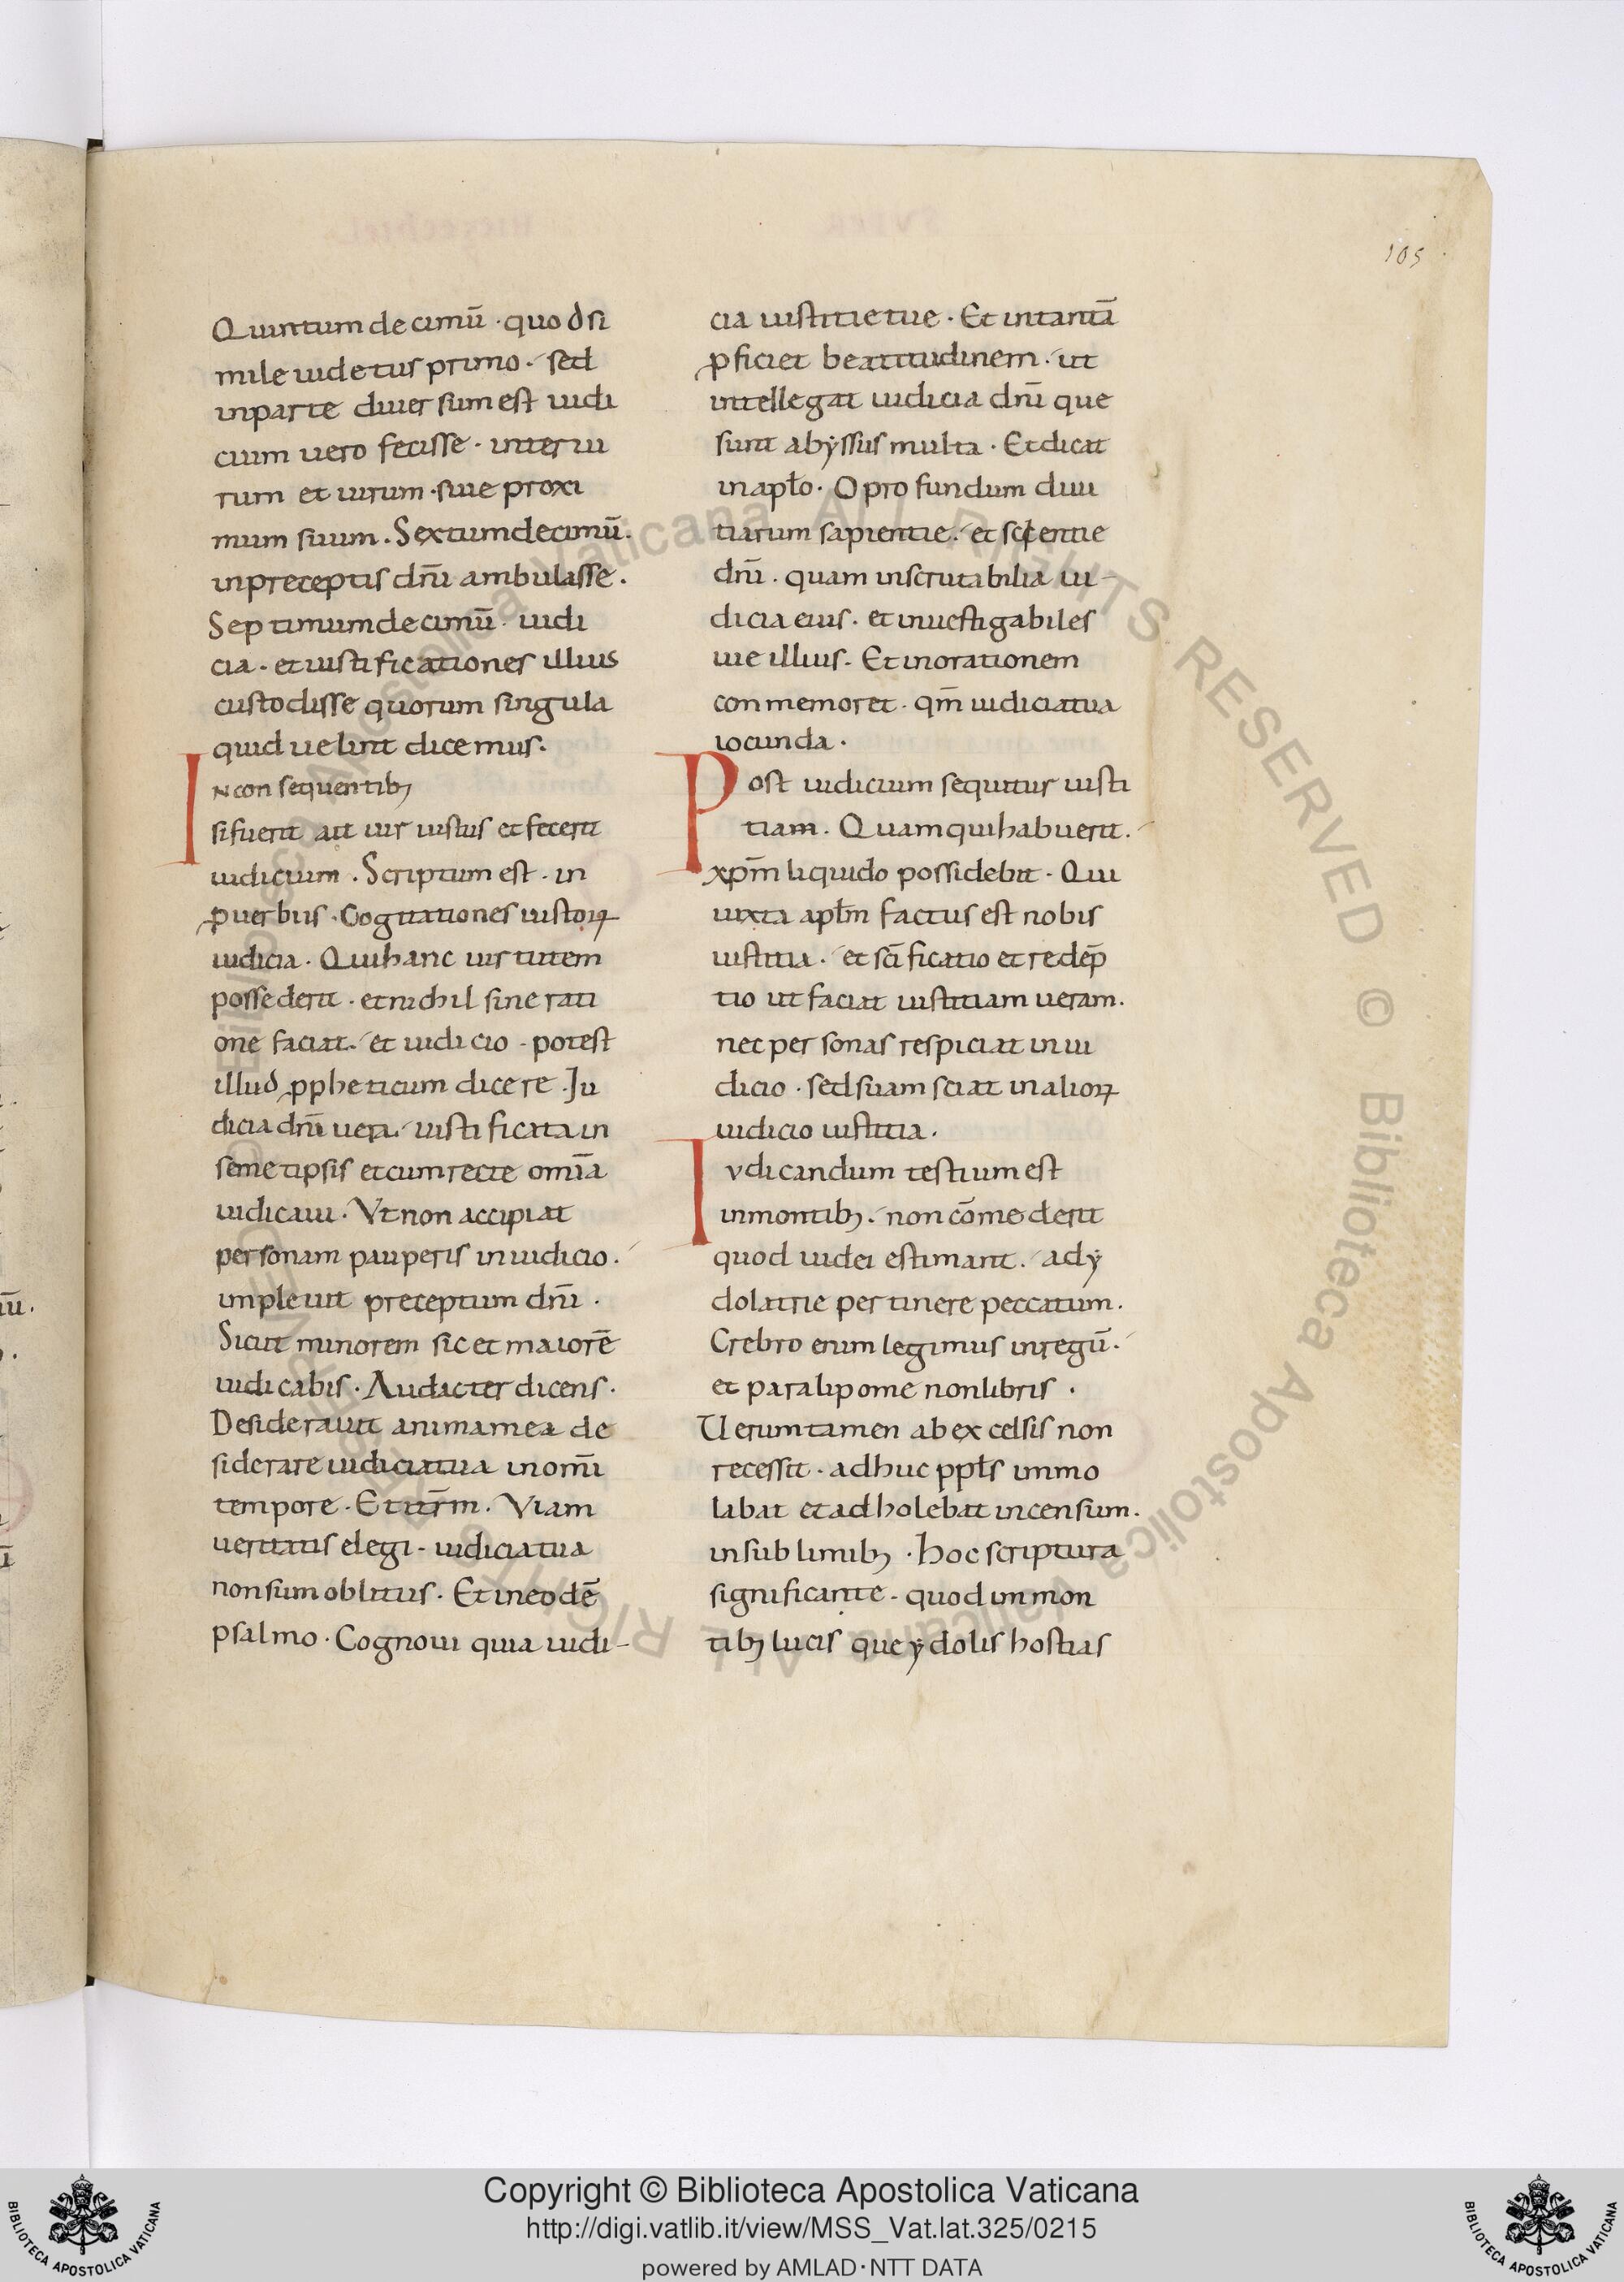 105
Quintum decimū · quod si
mile uidetus primo · sed
in parte diuersum est iudi
cium uero fecisse · inter ui
rum et uirum · siue proxi
mum suum . Sextum decimū .
in preceptis dn̄i ambulasse .
Septimum decimū · iudi
cia · et iustificationes illius
custodisse quorum singula
quid uelint dicemus .
In consequentibꝫ
si fuerit ait uir iustus et fecerit
iudicium . Scriptum est · in
ꝓuerbiis · Cogitationes iustoꝝ
iudicia . Qui hanc uirtutem
possederit · et nichil sine rati
one faciat . et iudicio - potest
illud ꝓpheticum dicere . Iu
dicia dn̄i uera . iustificata in
semetipsis et cum recte om̄ia
iudicaui . Vt non accipiat
personam pauperis in iudicio .
impleuit preceptum dn̄i .
Sicut minorem sic et maiorē
iudicabis . Audacter dicens .
Desiderauit anima mea de
siderare iudicia tua in om̄i
tempore . Et itr̄m . Viam
ueritatis elegi - iudicia tua
non sum oblitus . Et in eodē
psalmo . Cognoui quia iudi-
cia iustitie tue . Et in tantā
ꝓficiet beatitudinem . ut
intellegat iudicia dn̄i que
sunt abẏssus multa . Et dicat
in apl̄o . O profundum diui
tiarum sapientie . et scientie
dn̄i . quam inscrutabilia iu-
dicia eius . et inuestigabiles
uie illius . Et in orationem
conmemoret . qm̄ iudicia tua
iocunda .
Post iudicium sequitur iusti
tiam . Quam qui habuerit .
xp̄m liquido possidebit . Qui
iuxta apl̄m factus est nobis
iustitia . et sc̄ificatio et redēp
tio ut faciat iustitiam ueram .
nec personas respiciat in iu
dicio . sed suam sciat in alioꝝ
iudicio iustitia .
Iudicandum testium est
in montibꝫ . non cōmederit
quod iudei estimant . ad ẏ
dolatrie pertinere peccatum .
Crebro enim legimus in regū .
et paralipomenon libris .
Uerumtamen ab excelsis non
recessit . adhuc ppl̄s immo
labat et adholebat incensum .
in sublimibꝫ . hoc scriptura
significante - quod in mon
tibꝫ lucis que ẏdolis hostias
Copyright © Biblioteca Apostolica Vaticana
http://digi.vatlib.it/view/MSS_Vat.lat.325/0215
powered by AMLAD·NTT DATA